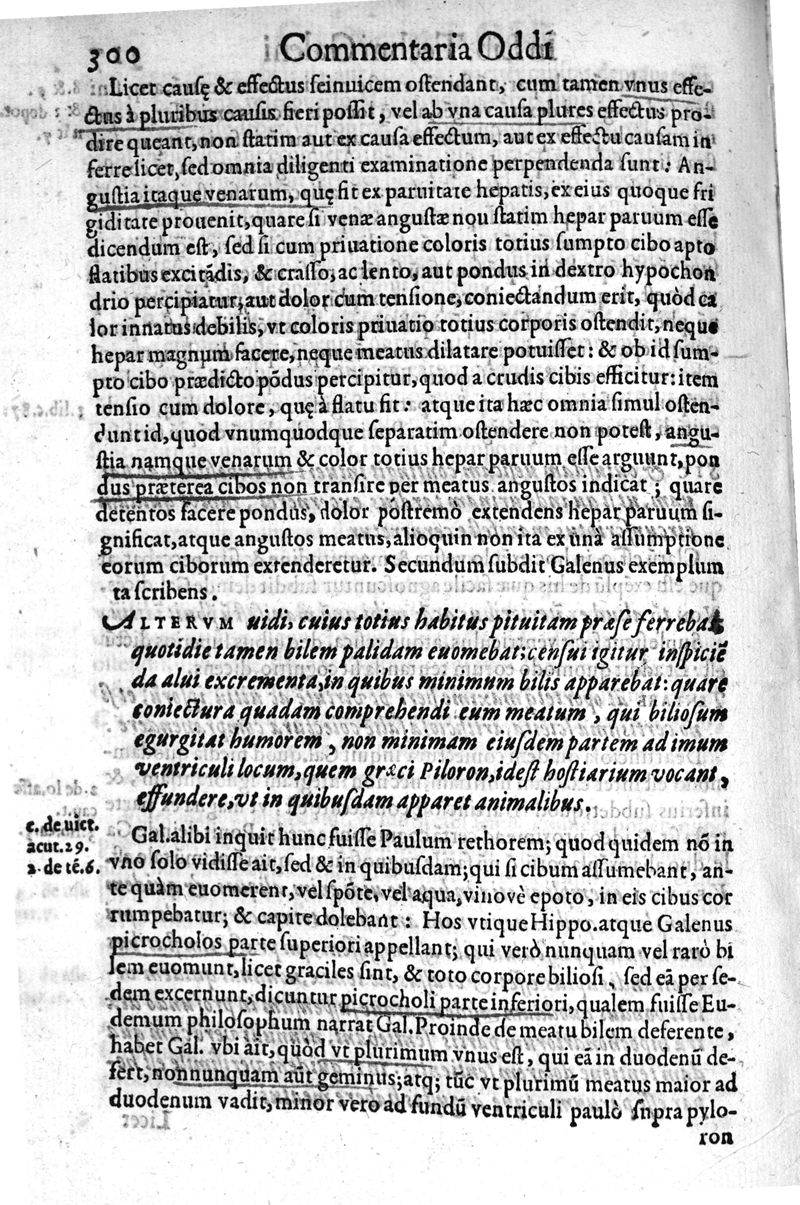 300 Commentaria Oddi
Licet causę & effectus seinuicem ostendant, cum tamen vnus effe-
ctus à pluribus causis fieri possit, vel ab vna causa plures effectus pro-
dire queant, non statim aut ex causa effectum, aut ex effectu causam in
ferre licet, sed omnia diligenti examinatione perpendenda sunt: An-
gustia itaque venarum, quę fit ex paruitate hepatis, ex eius quoque fri
giditate prouenit, quare si venæ angustæ non statim hepar paruum esse
dicendum est, sed si cum priuatione coloris totius sumpto cibo apto
flatibus excitãdis, & crasso, ac lento, aut pondus in dextro hypochon
drio percipiatur, aut dolor cum tensione, coniectandum erit, quòd ca
lor innatus debilis, vt coloris priuatio totius corporis ostendit, neque
hepar magnum facere, neque meatus dilatare potuisset: & ob id sum-
pto cibo prædicto põdus percipitur, quod a crudis cibis efficitur: item
tensio cum dolore, quę à flatu fit: atque ita hæc omnia simul osten-
dunt id, quod vnumquodque separatim ostendere non potest, angu-
stia namque venarum & color totius hepar paruum esse arguunt, pon
dus præterea cibos non transire per meatus angustos indicat; quare
detentos facere pondus, dolor postremò extendens hepar paruum si-
gnificat, atque angustos meatus, alioquin non ita ex unà assumptione
eorum ciborum extenderetur. Secundum subdit Galenus exemplum
ita scribens.
ALTERVM uidi, cuius totius habitus pituitam præse ferrebat
quotidie tamen bilem palidam euomebat; censui igitur inspiciē
da alui excrementa, in quibus minimum bilis apparebat: quare
coniectura quadam comprehendi eum meatum, qui biliosum
egurgitat humorem, non minimam eiusdem partem ad imum
ventriculi locum, quem græci Piloron, idest hostiarium vocant,
effundere, vt in quibusdam apparet animalibus.
c. de uict.
acut. 29.
2. de tē. 6.
Gal. alibi inquit hunc fuisse Paulum rethorem; quod quidem nõ in
vno solo vidisse ait, sed & in quibusdam; qui si cibum assumebant, an-
te quàm euomerent, vel spõte, vel aqua, vinovè epoto, in eis cibus cor
rumpebatur; & capite dolebant: Hos vtique Hippo. atque Galenus
picrocholos parte superiori appellant; qui verò nunquam vel rarò bi
lem euomunt, licet graciles sint, & toto corpore biliosi, sed eã per se-
dem excernunt, dicuntur picrocholi parte inferiori, qualem fuisse Eu-
demum philosophum narrat Gal. Proinde de meatu bilem deferente,
habet Gal. vbi ait, quòd vt plurimum vnus est, qui eã in duodenũ de-
fert, nonnunquam aũt geminus; atq; tũc vt plurimũ meatus maior ad
duodenum vadit, minor vero ad fundũ ventriculi paulò supra pylo-
ron